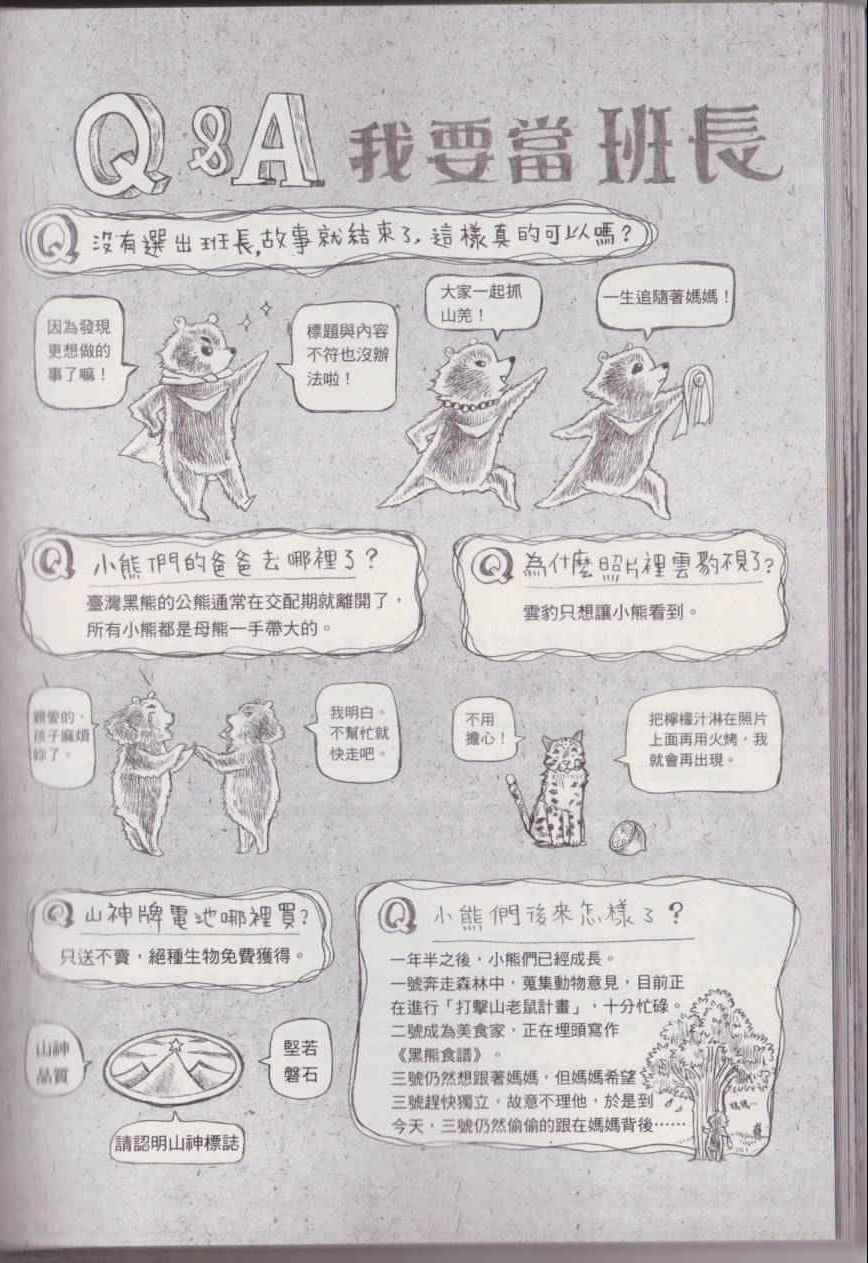 Q&A 我要當班長
Q 沒有選出班長,故事就結束了,這樣真的可以嗎?
因為發現
更想做的
事了嘛!
標題與內容
不符也沒辦
法啦!
大家一起抓
山羌!
一生追隨著媽媽!
Q 小熊們的爸爸去哪裡了?
臺灣黑熊的公熊通常在交配期就離開了,
所有小熊都是母熊一手帶大的。
Q 為什麼照片裡雲豹不見了?
雲豹只想讓小熊看到。
親愛的,
孩子麻煩
妳了。
我明白。
不幫忙就
快走吧。
不用
擔心!
把檸檬汁淋在照片
上面再用火烤,我
就會再出現。
Q 山神牌電池哪裡買?
只送不賣,絕種生物免費獲得。
山神
品質
堅若
磐石
請認明山神標誌
Q 小熊們後來怎樣了?
一年半之後,小熊們已經成長。
一號奔走森林中,蒐集動物意見,目前正
在進行「打擊山老鼠計畫」,十分忙碌。
二號成為美食家,正在埋頭寫作
《黑熊食譜》。
三號仍然想跟著媽媽,但媽媽希望
三號趕快獨立,故意不理他,於是到
今天,三號仍然偷偷的跟在媽媽背後……
媽媽…